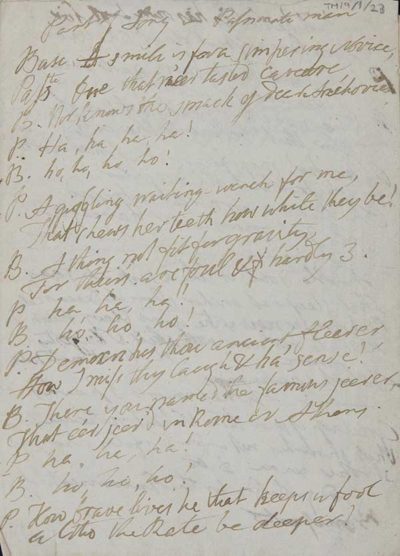 TM19/1/23
Part Song Passionate man
Base A smile is for a simpering novice,
Pass. One that ne'er tasted caveare,
B. Nor knows the smack of dear anchovies
P. Ha, ha, ha, ha!
B. ho, ho, ho, ho!
P. A giggling waiting wench for me,
That shews her teeth how white they be!
B. A thing not fit for gravity
For theirs are foul & hardly 3.
P ha, ha, ha!
B. ho, ho, ho!
P. Democritus thou ancient fleerer
How I miss thy laugh & ha' sense!
B. There you named the famous jeerer
That e'er jeer'd in Rome or Athens.
P ha, ha, ha!
B. ho, ho, ho!
P. How brave lives he that keeps a fool
Altho the Rate be deeper!